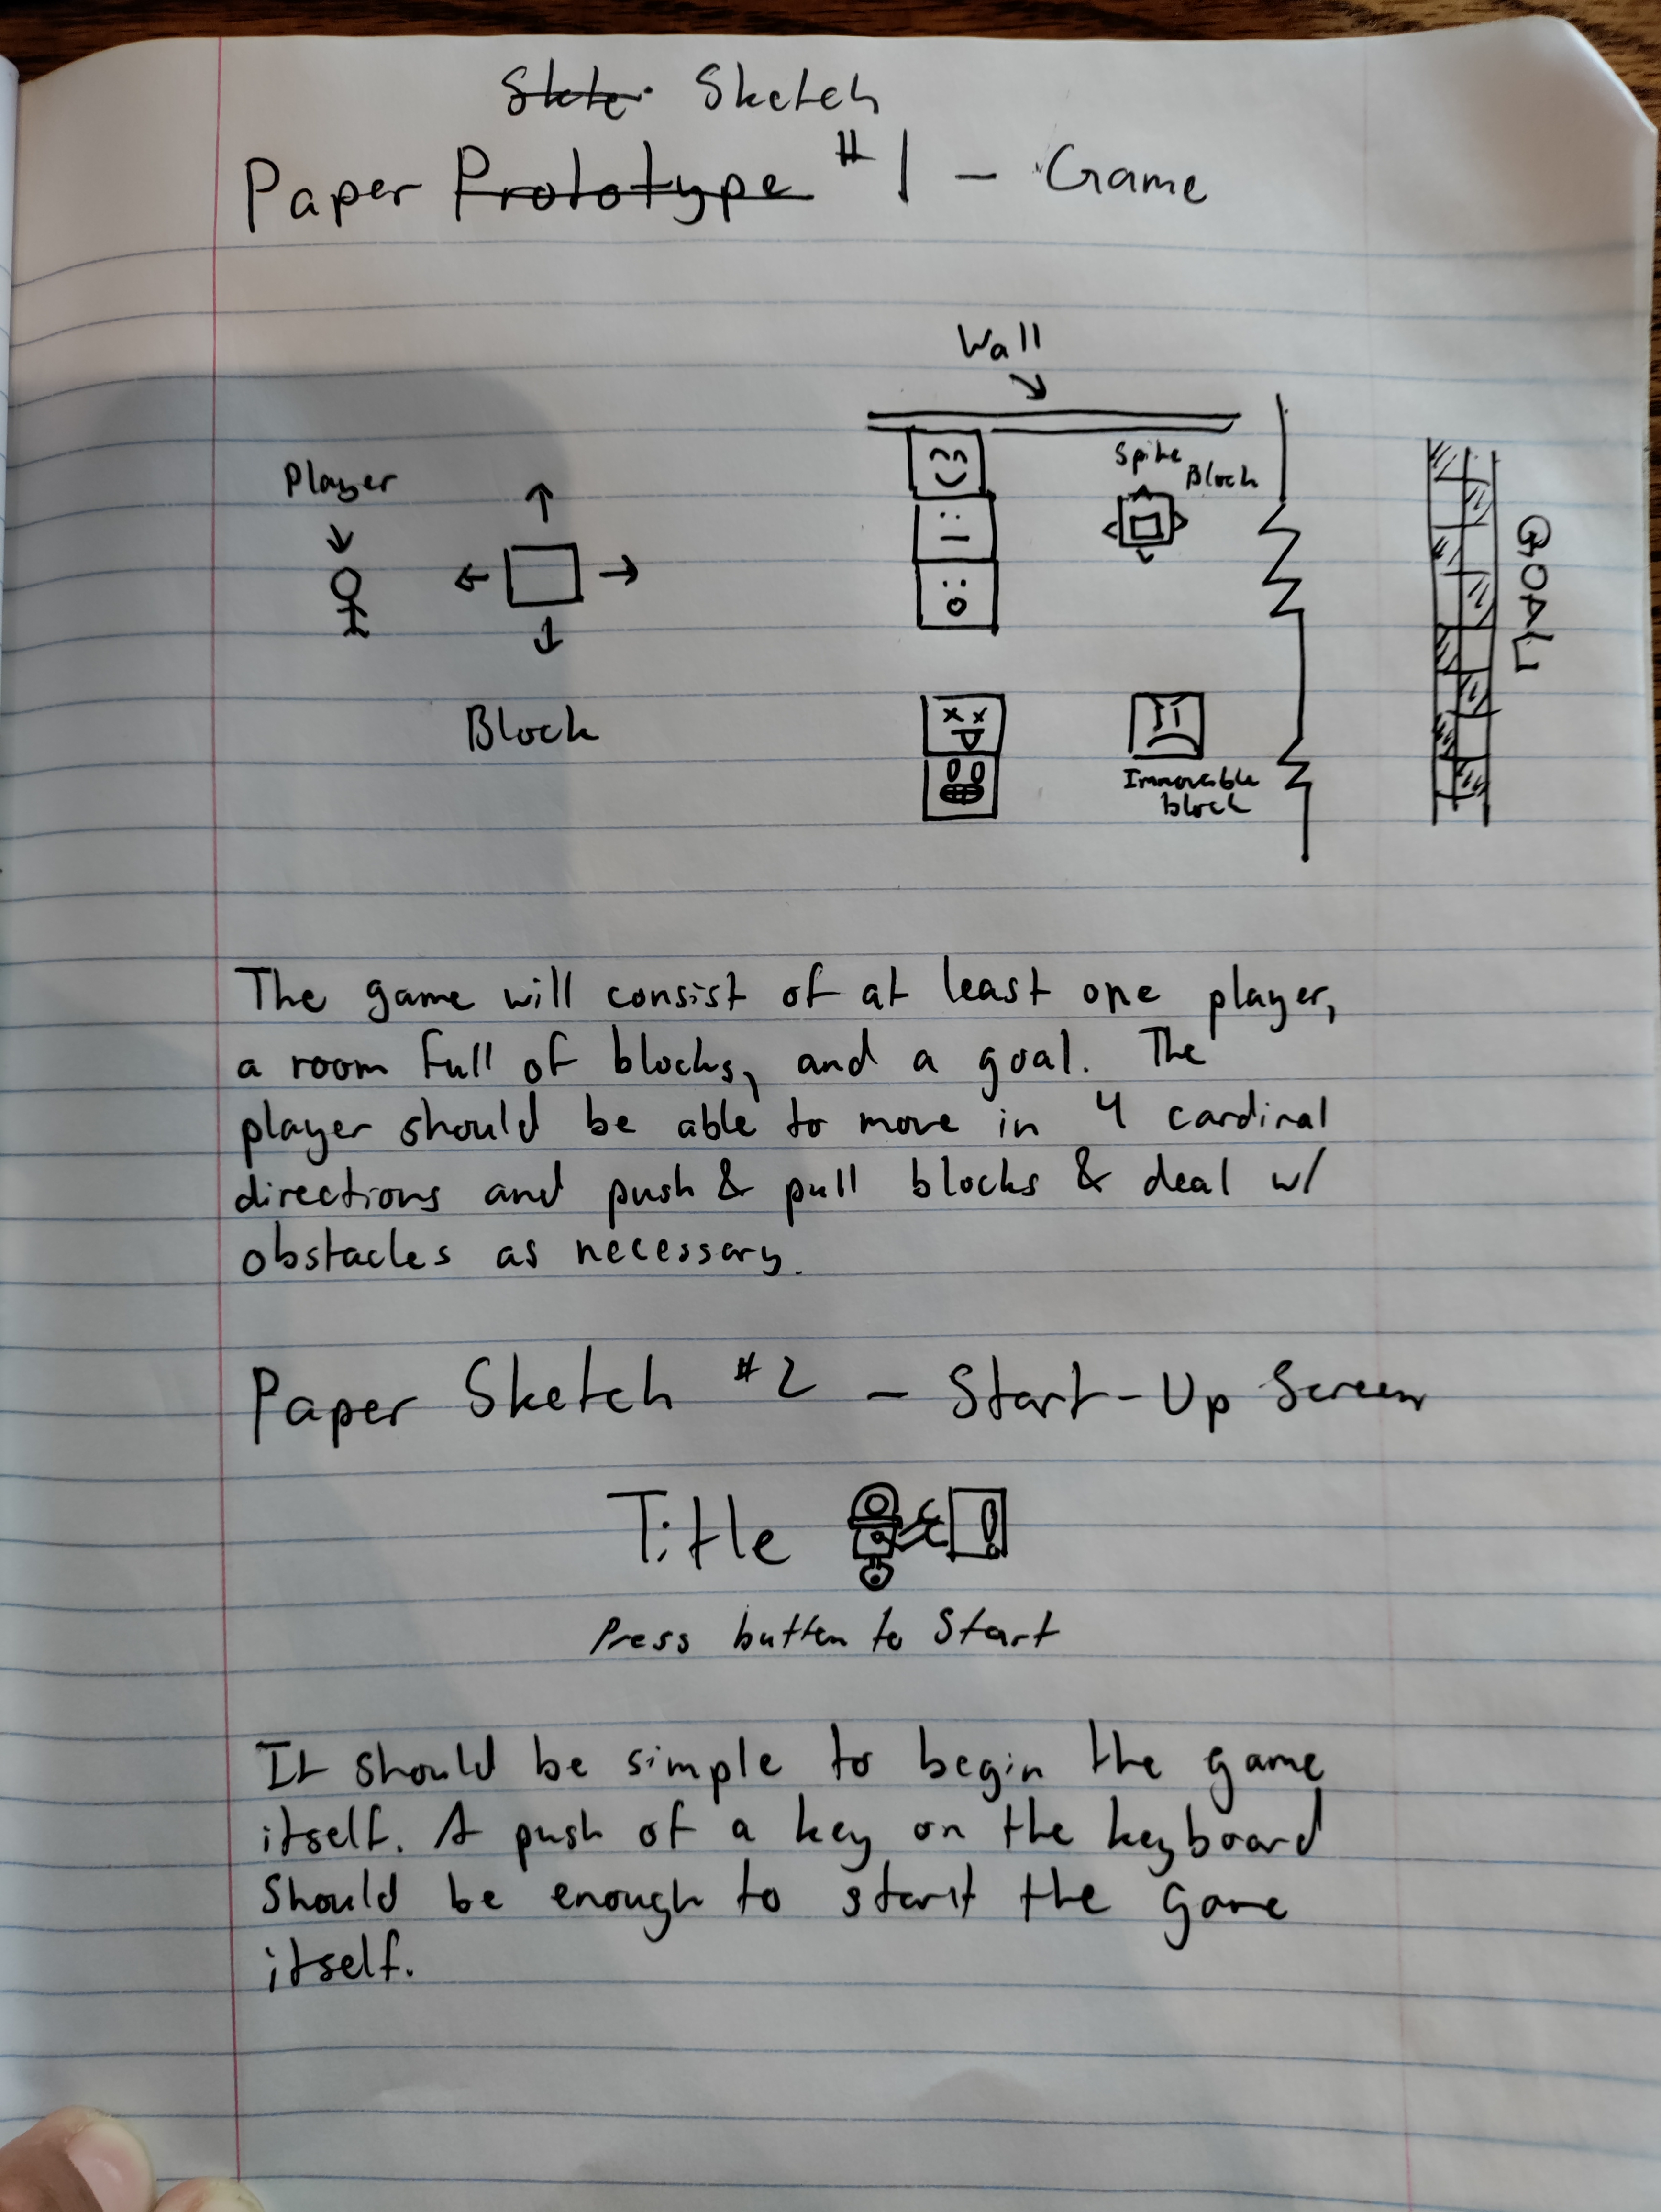 Sketch
Paper Prototype #1 - Game
Wall
Player
Spike
Block
GOAL
Block
Immovable
block
The game will consist of at least one player,
a room full of blocks, and a goal. The
player should be able to move in 4 cardinal
directions and push & pull blocks & deal w/
obstacles as necessary.
Paper Sketch #2 - Start-Up Screen
Title !
Press button to Start
It should be simple to begin the game
itself. A push of a key on the keyboard
should be enough to start the game
itself.